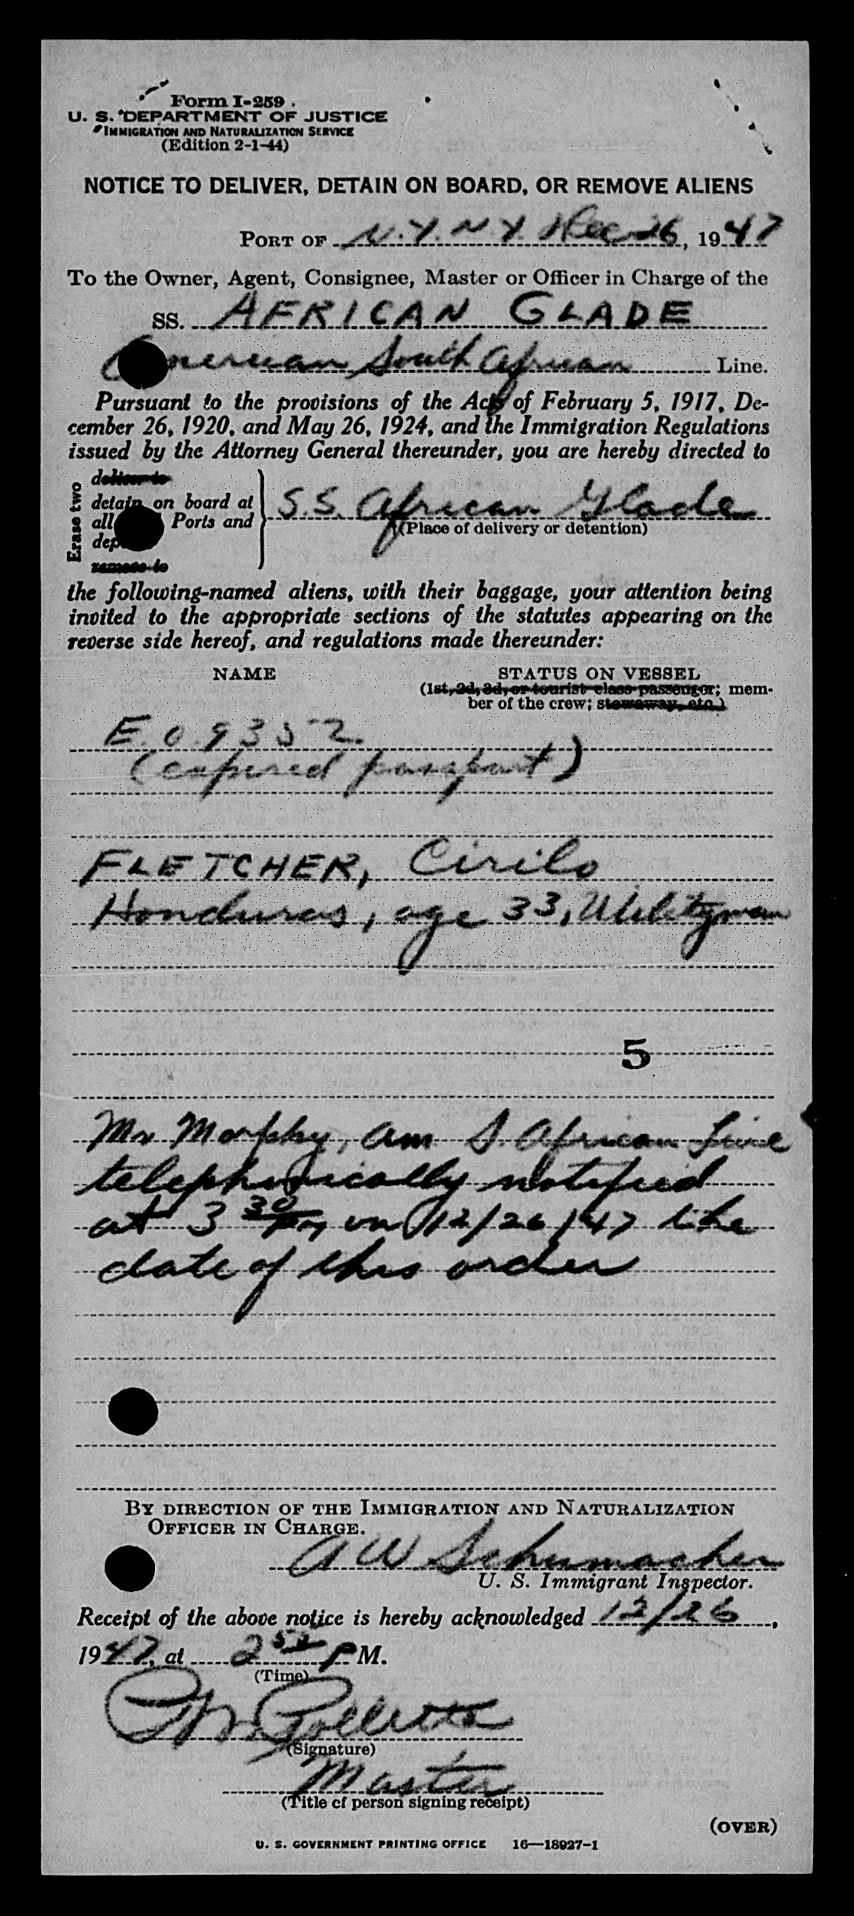 Form I-259
U. S. DEPARTMENT OF JUSTICE
IMMIGRATION AND NATURALIZATION SERVICE
(Edition 2-1-44)
NOTICE TO DELIVER, DETAIN ON BOARD, OR REMOVE ALIENS
PORT OF N.Y. N.Y. Dec 26, 1947
To the Owner, Agent, Consignee, Master or Officer in Charge of the
SS. AFRICAN GLADE
American South African Line.
Pursuant to the provisions of the Acts of February 5, 1917, De-
cember 26, 1920, and May 26, 1924, and the Immigration Regulations
issued by the Attorney General thereunder, you are hereby directed to
Erase two
deliver to
detain on board at
all Ports and
remove to
S.S. African Glade
(Place of delivery or detention)
the following-named aliens, with their baggage, your attention being
invited to the appropriate sections of the statutes appearing on the
reverse side hereof, and regulations made thereunder:
NAME STATUS ON VESSEL
(1st, 2d, 3d, or tourist class passenger; mem-
ber of the crew; stowaway, etc.)
E.O. 9352
(expired passport)
FLETCHER, Cirilo
Honduras, age 33, Utilityman
5
Mr Morphy, Am S. African Line
telephonically notified
at 3 30 PM on 12/26/47 the
date of this order
BY DIRECTION OF THE IMMIGRATION AND NATURALIZATION
OFFICER IN CHARGE.
A W Schumacher
U. S. Immigrant Inspector.
Receipt of the above notice is hereby acknowledged 12/26,
1947, at 2 52 P M.
(Time)
(Signature)
Master
(Title of person signing receipt)
(OVER)
U. S. GOVERNMENT PRINTING OFFICE 16—18927-1